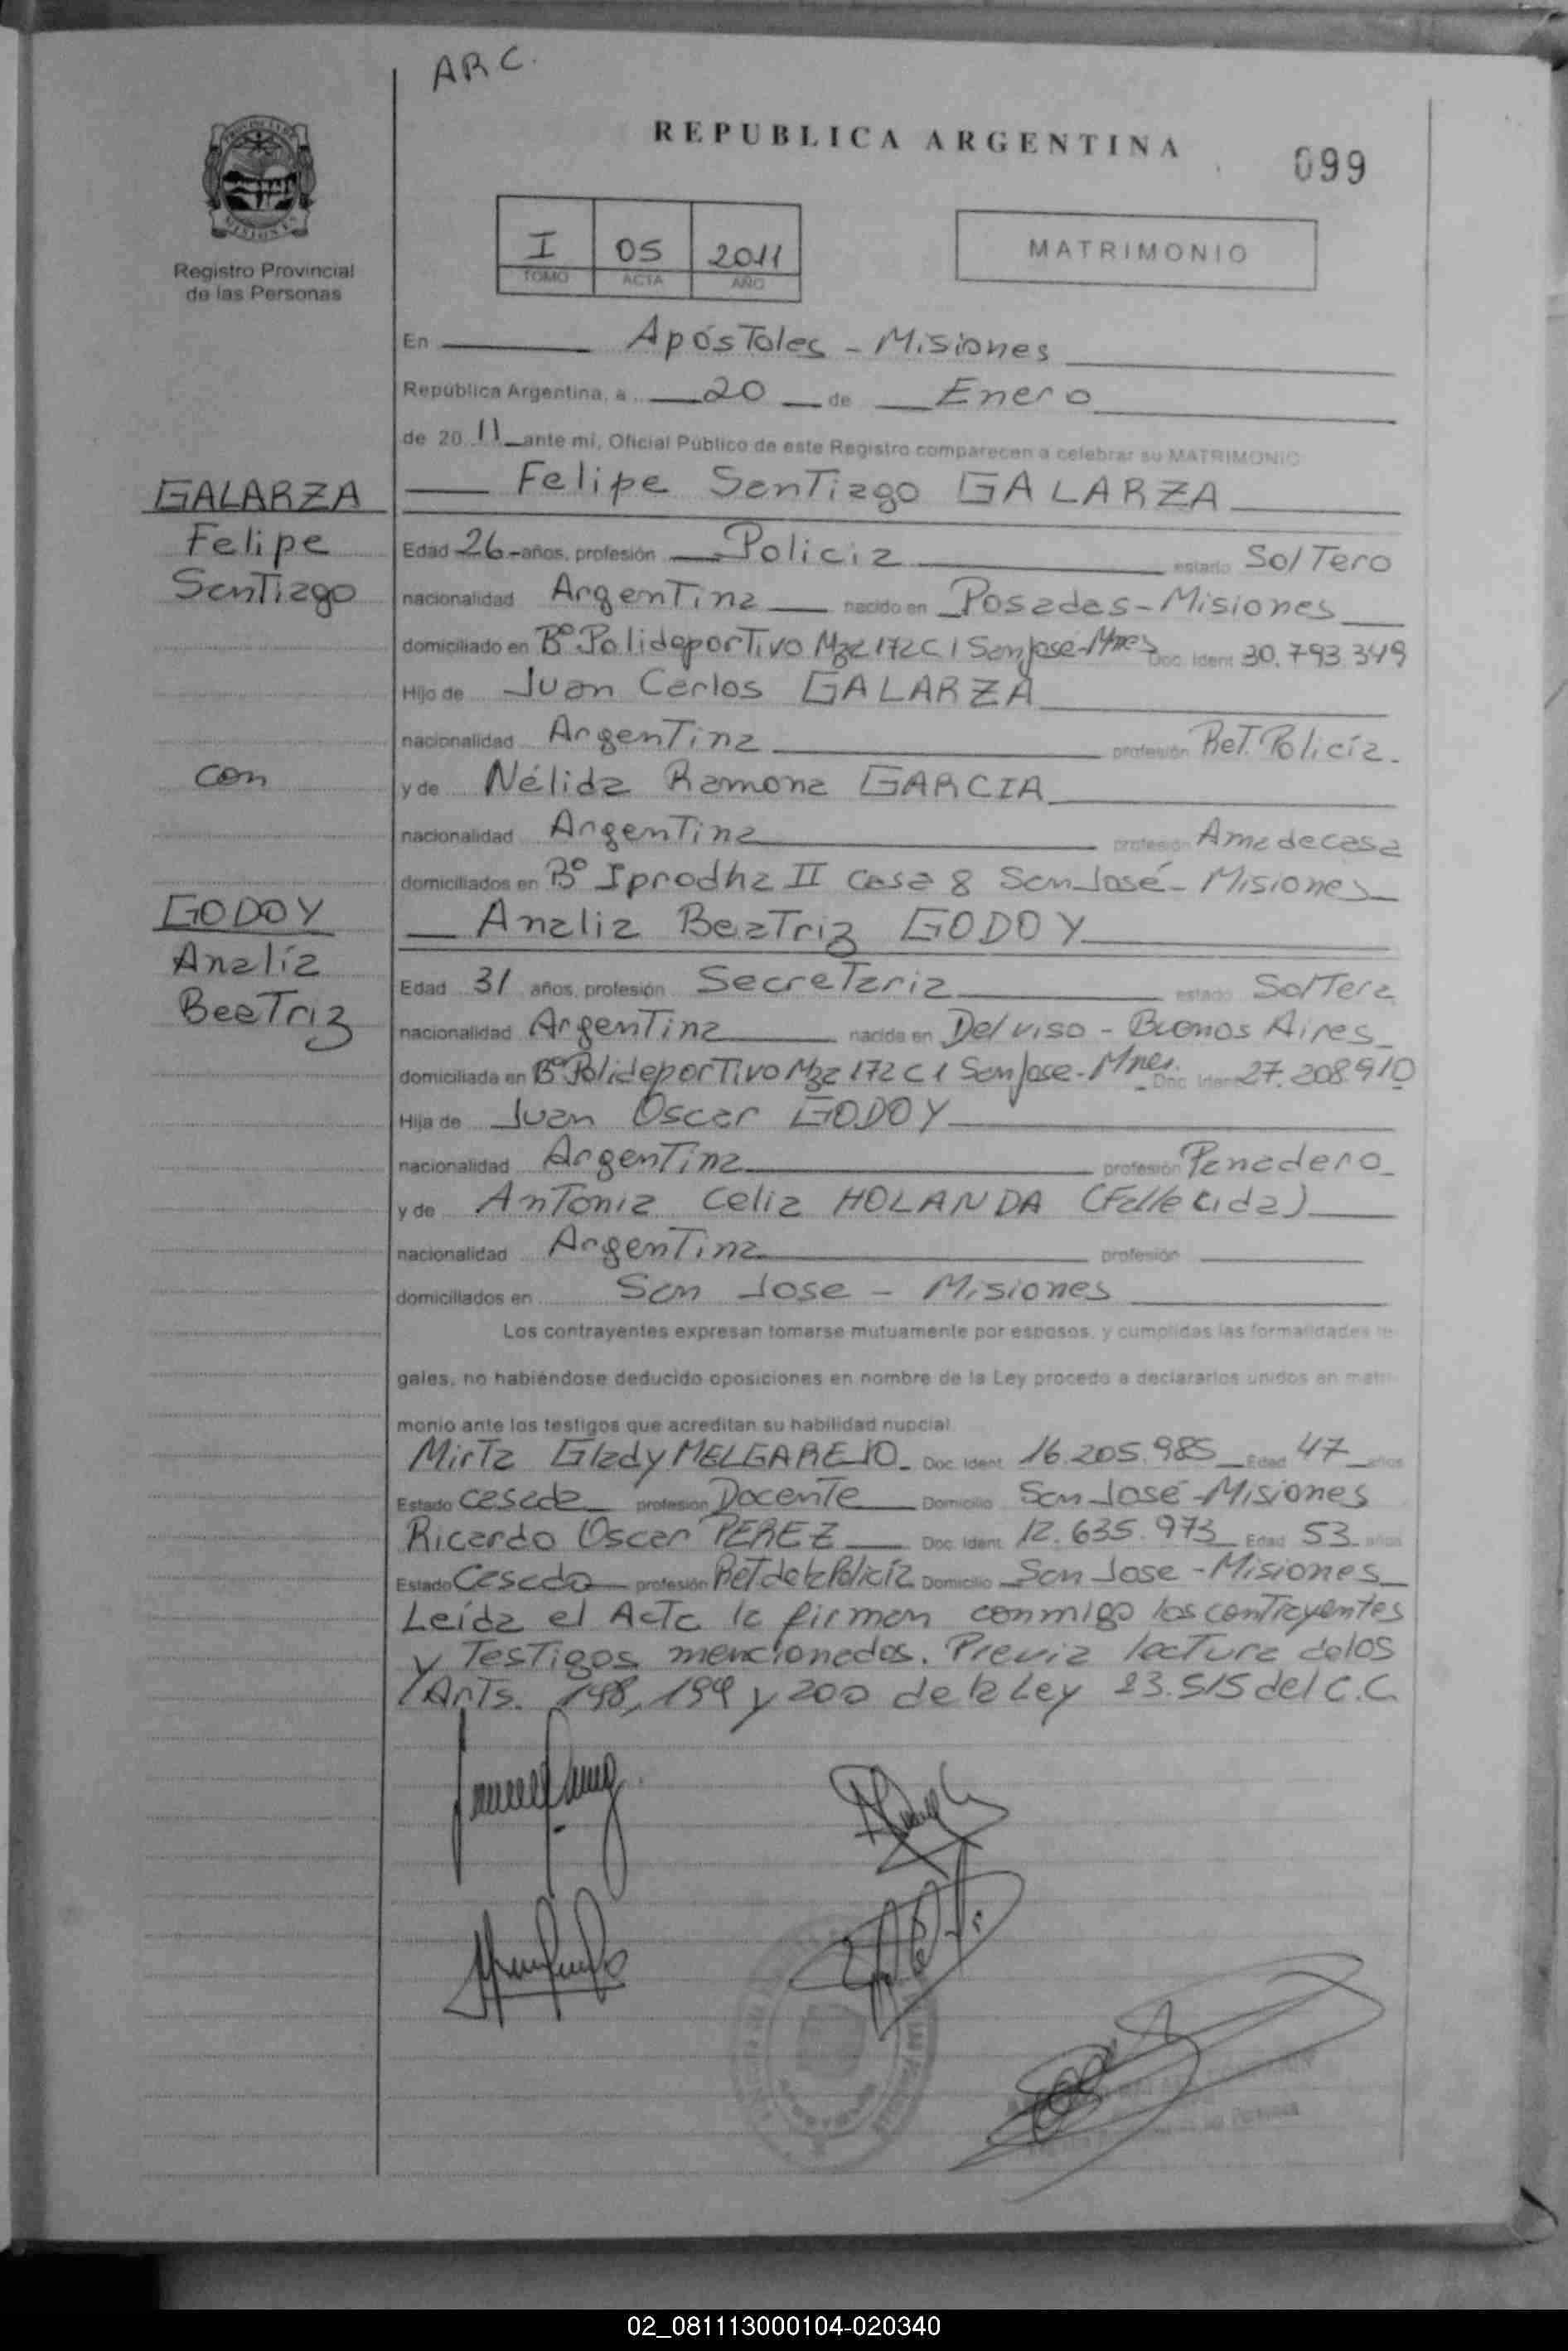 ARC.
REPUBLICA ARGENTINA
099
I 05 2011
TOMO ACTA AÑO
MATRIMONIO
Registro Provincial
de las Personas
En Apóstoles - Misiones
República Argentina, a 20 de Enero
de 20 11 ante mí, Oficial Público de este Registro comparecen a celebrar su MATRIMONIO
Felipe Santiago GALARZA
GALARZA
Felipe
Santiago
Edad 26 años, profesión Policia estado Soltero
nacionalidad Argentina nacido en Posadas - Misiones
domiciliado en Bº Polideportivo Mza 172 C 1 San Jose - Mnes Doc. Ident. 30.793.349
Hijo de Juan Carlos GALARZA
nacionalidad Argentina profesión Ret. Policía.
con
y de Nélida Ramona GARCIA
nacionalidad Argentina profesión Ama de casa
domiciliados en Bº Iprodha II casa 8 San José - Misiones
GODOY
Analía
Beatriz
Analia Beatriz GODOY
Edad 31 años, profesión Secretaria estado Soltera
nacionalidad Argentina nacida en Del viso - Buenos Aires
domiciliada en Bº Polideportivo Mza 172 C 1 San Jose - Mnes. Doc. Ident. 27.208.910
Hija de Juan Oscar GODOY
nacionalidad Argentina profesión Panadero
y de Antonia Celia HOLANDA (Fallecida)
nacionalidad Argentina profesión
domiciliados en San Jose - Misiones
Los contrayentes expresan tomarse mutuamente por esposos, y cumplidas las formalidades le-
gales, no habiéndose deducido oposiciones en nombre de la Ley procedo a declararlos unidos en matri-
monio ante los testigos que acreditan su habilidad nupcial
Mirta Glady MELGAREJO Doc. Ident. 16.205.985 Edad 47 años
Estado casada profesión Docente Domicilio San José - Misiones
Ricardo Oscar PEREZ Doc. Ident. 12.635.973 Edad 53 años
Estado Casado profesión Ret de la Policía Domicilio San Jose - Misiones
Leída el Acta la firman conmigo los contrayentes
y Testigos mencionados. Previa lectura de los
Arts. 198, 199 y 200 de la Ley 23.515 del C.C.
02_081113000104-020340